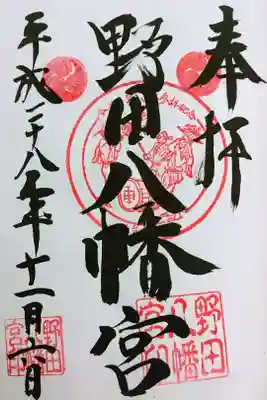 奉拝
野田八幡宮
平成二十八年十一月六日
参拝記念
野田
八幡
宮印
野田
宮印